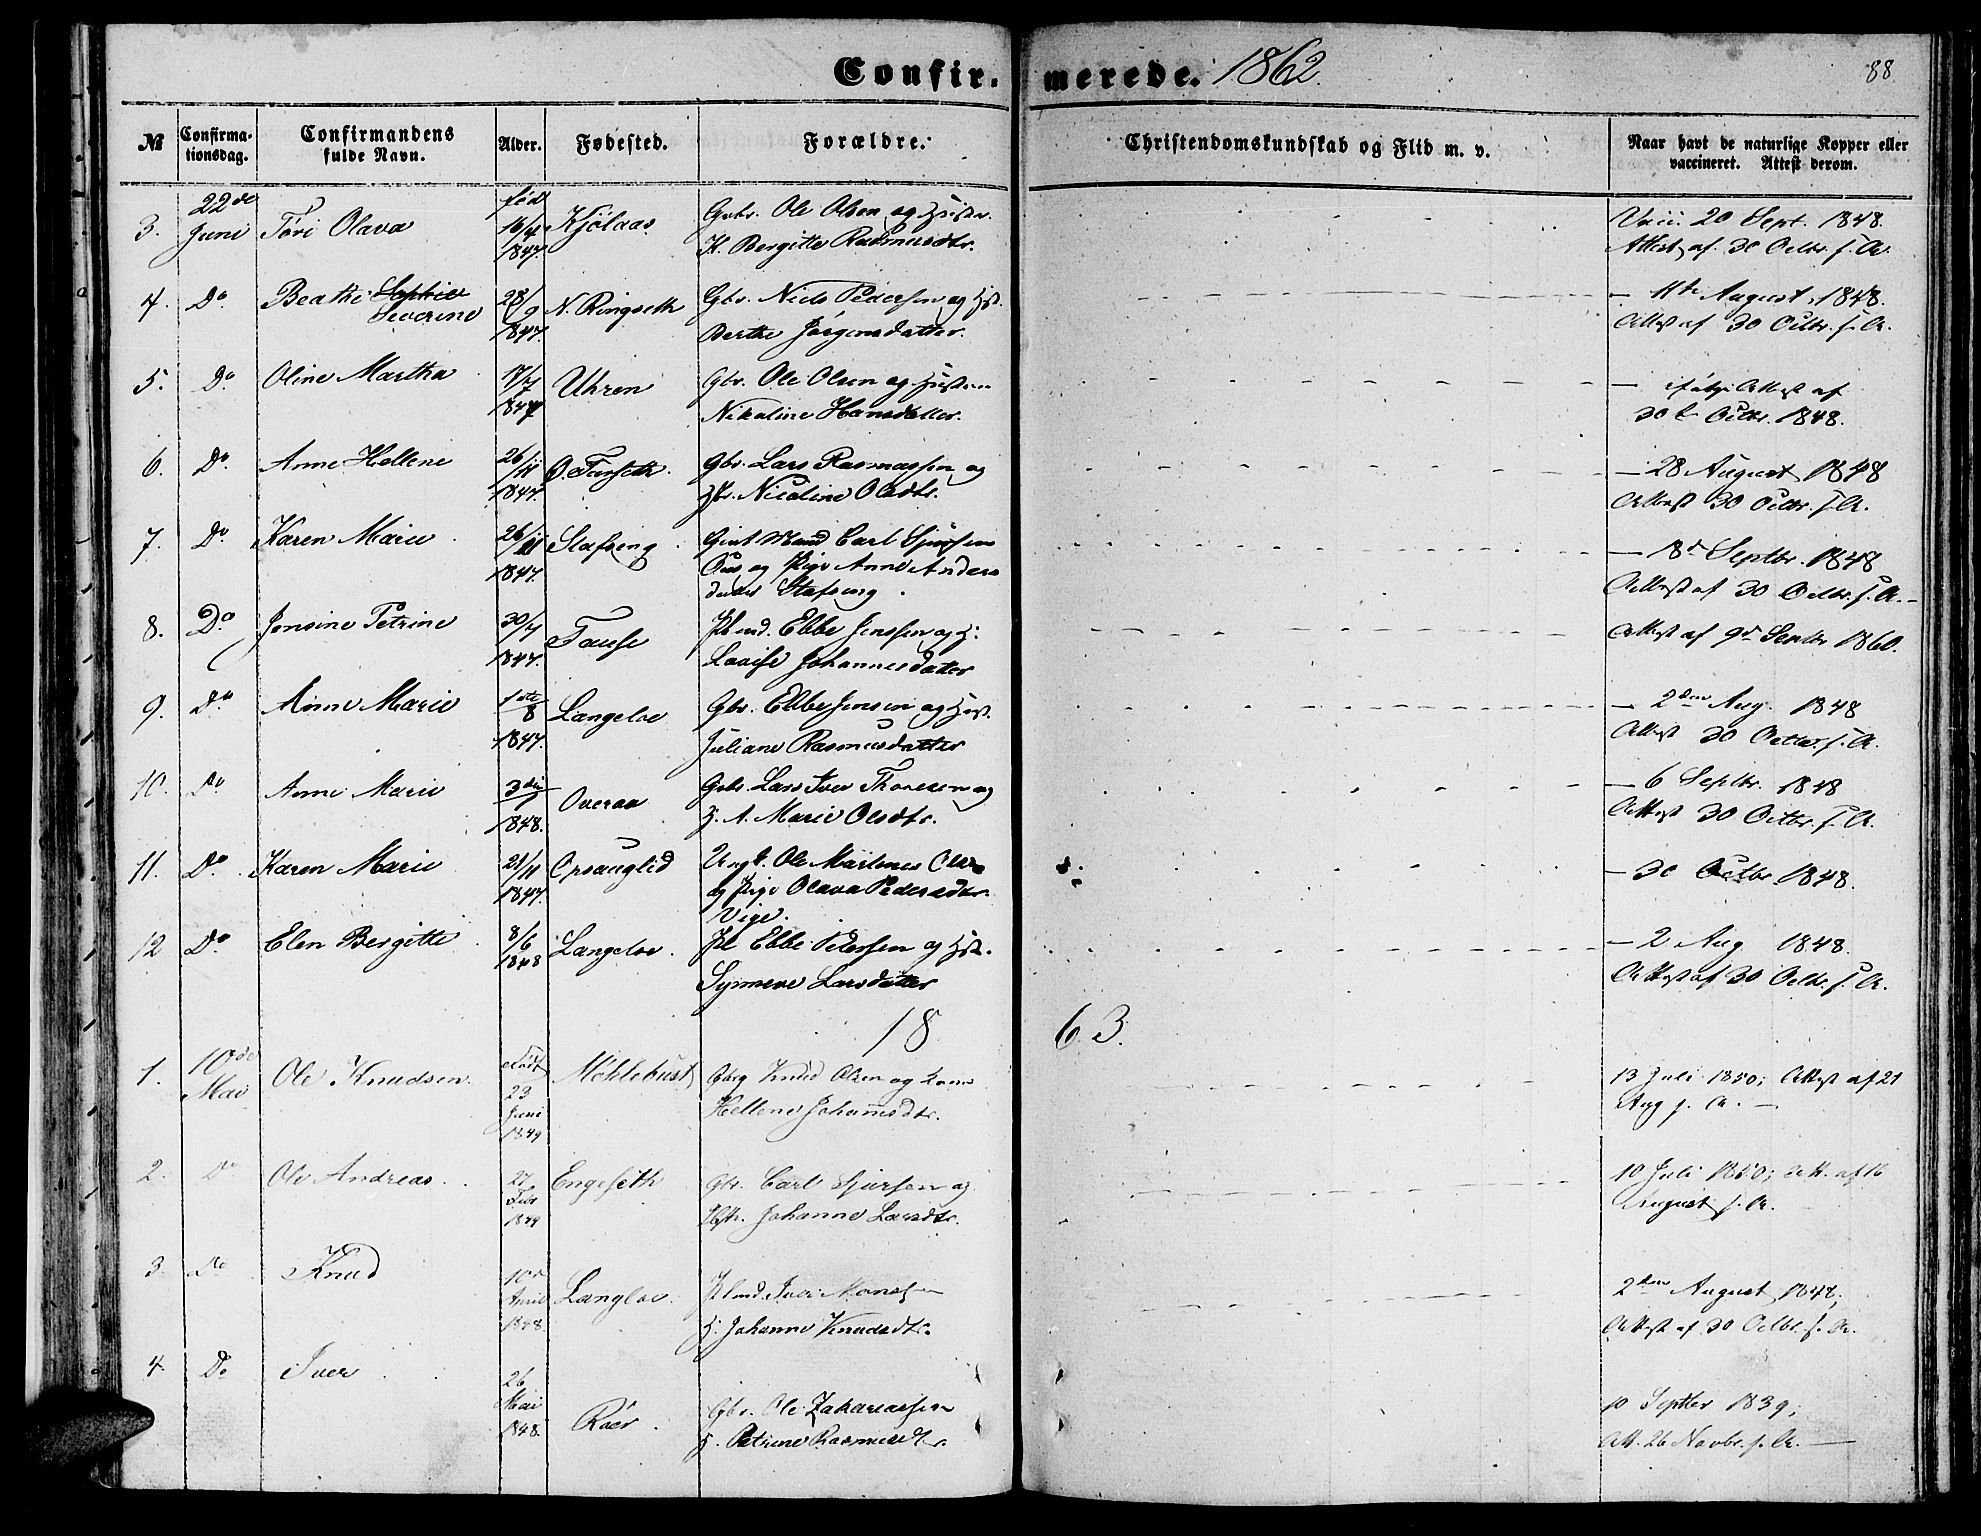 Confirmerede. 1862.
88
№ Confirmationsdag. Confirmandens fulde Navn. Alder. Fødested. Forældre. Christendomskundskab og Flid m. v. Naar havt de naturlige Kopper eller vaccineret. Attest derom.
3. 22de Juni Tøri Olava fød 16/4 1847. Kjölaas Gbr. Ole Olsen og Hustr.
K. Bergitte Rasmusdtr.
Vacc. 20 Sept. 1848.
Attest af 30 Octbr. s. A.
4. Do Beathe Sophie Severine 28/9 1847. N. Ringseth Gbr. Niels Pedersen og Hst.
Berthe Jörgensdatter.
— 11te August 1848.
Attest af 30 Octbr. s. A.
5. Do Oline Martha 17/7 1847 Uhren Gbr. Ole Olsen og Hustru
Nikoline Hansdatter.
— ifölge Attest af
30te Octbr. 1848.
6. Do Anne Hellene 26/11 1847. Gbr. Lars Rasmussen og
Hst. Nicoline Olsdtr.
— 28 August 1848
Attest 30 Octbr. s. A.
7. Do Karen Marie 26/11 1847. Stafseng Carl Sjursen
og Pige Anne Anders
datter Stafseng
— 18de Septbr. 1848
Attest af 30 Octbr. s. A.
8. Do Jensine Petrine 30/7 1847. Fause Plmd. Ebbe Jenssen og H.
Lovise Johannesdatter
Attest af 9de Septbr 1860.
9. Do Anne Marie 1ste/8 1847. Langeloe Gbr. Ebbe Jensen og Hust.
Juliane Rasmusdatter
— 2den Aug. 1848
Attest 30 Octbr. s. A.
10. Do Anne Marie 3die/1 1848. Overaa Gbr. Lars Iver Thoresen og
H. A. Marie Olsdtr.
— 6 Septbr. 1848
Attest 30 Octbr. s. A.
11. Do Karen Marie 21/11 1847. Opsauglid Ungk. Ole Martinus Olsen
og Pige Olava Pedersdtr.
Vige.
— 30 Octbr. 1848.
12 Do Elen Bergitte 8/6 1848 Langeloe. Pl Ebbe Petersen og Hst.
Synneve Larsdatter
— 2 Aug 1848.
Attest af 30 Octbr. s. A.
1863.
1. 10de Mai Ole Knudsen. født 23 Juni 1849 Möklebust Gbrg Knud Olsen og Kone
Hellene Johannesdtr.
13 Juli 1850; Attest af 21
Aug s. A. —
2. Do Ole Andreas 27 Febr 1849 Engeseth Gbr. Carl Sjursen og
Hstr. Johanne Larsdtr.
10 Juli 1850; Att. af 16
August s. A.
3. Do Knud 10de April 1848. Langloe. Plmd. Iver Monssen
H. Johanne Knudsdtr.
2den August 1848;
Attest af 30 Octbr. s. A.
4. Do Iver 26 Mai 1848. Röer. Gbr. Ole Zakariassen
H. Petrine Rasmusdtr.
10 Septbr 1839;
Att. 26 Novbr. s. A. —